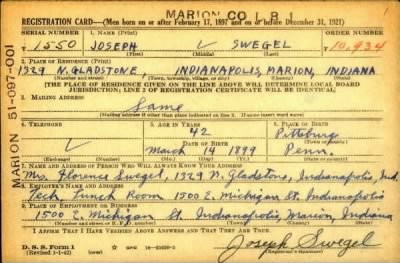 MARION CO L B
REGISTRATION CARD—(Men born on or after February 17, 1897 and on or before December 31, 1921)
SERIAL NUMBER 1. NAME (Print) ORDER NUMBER
T 1550 JOSEPH SWEGEL T 10,934
(First) (Middle) (Last)
2. PLACE OF RESIDENCE (Print)
1329 N. GLADSTONE, INDIANAPOLIS, MARION, INDIANA
(Number and street) (Town, township, village, or city) (County) (State)
[THE PLACE OF RESIDENCE GIVEN ON THE LINE ABOVE WILL DETERMINE LOCAL BOARD
JURISDICTION; LINE 2 OF REGISTRATION CERTIFICATE WILL BE IDENTICAL]
3. MAILING ADDRESS
Same
[Mailing address if other than place indicated on line 2. If same insert word same]
4. TELEPHONE 5. AGE IN YEARS 6. PLACE OF BIRTH
42 Pittsburg
DATE OF BIRTH
March 14 1899 Penn.
7. NAME AND ADDRESS OF PERSON WHO WILL ALWAYS KNOW YOUR ADDRESS
Mrs. Florence Swegel, 1329 N. Gladstone, Indianapolis, Ind.
8. EMPLOYER'S NAME AND ADDRESS
Tech Lunch Room 1500 E. Michigan St. Indianapolis
9. PLACE OF EMPLOYMENT OR BUSINESS
1500 E. Michigan St. Indianapolis, Marion, Indiana
I AFFIRM THAT I HAVE VERIFIED ABOVE ANSWERS AND THAT THEY ARE TRUE.
D. S. S. Form 1
(Revised 1-1-42) (over)
Joseph Swegel
MARION 51-097-001